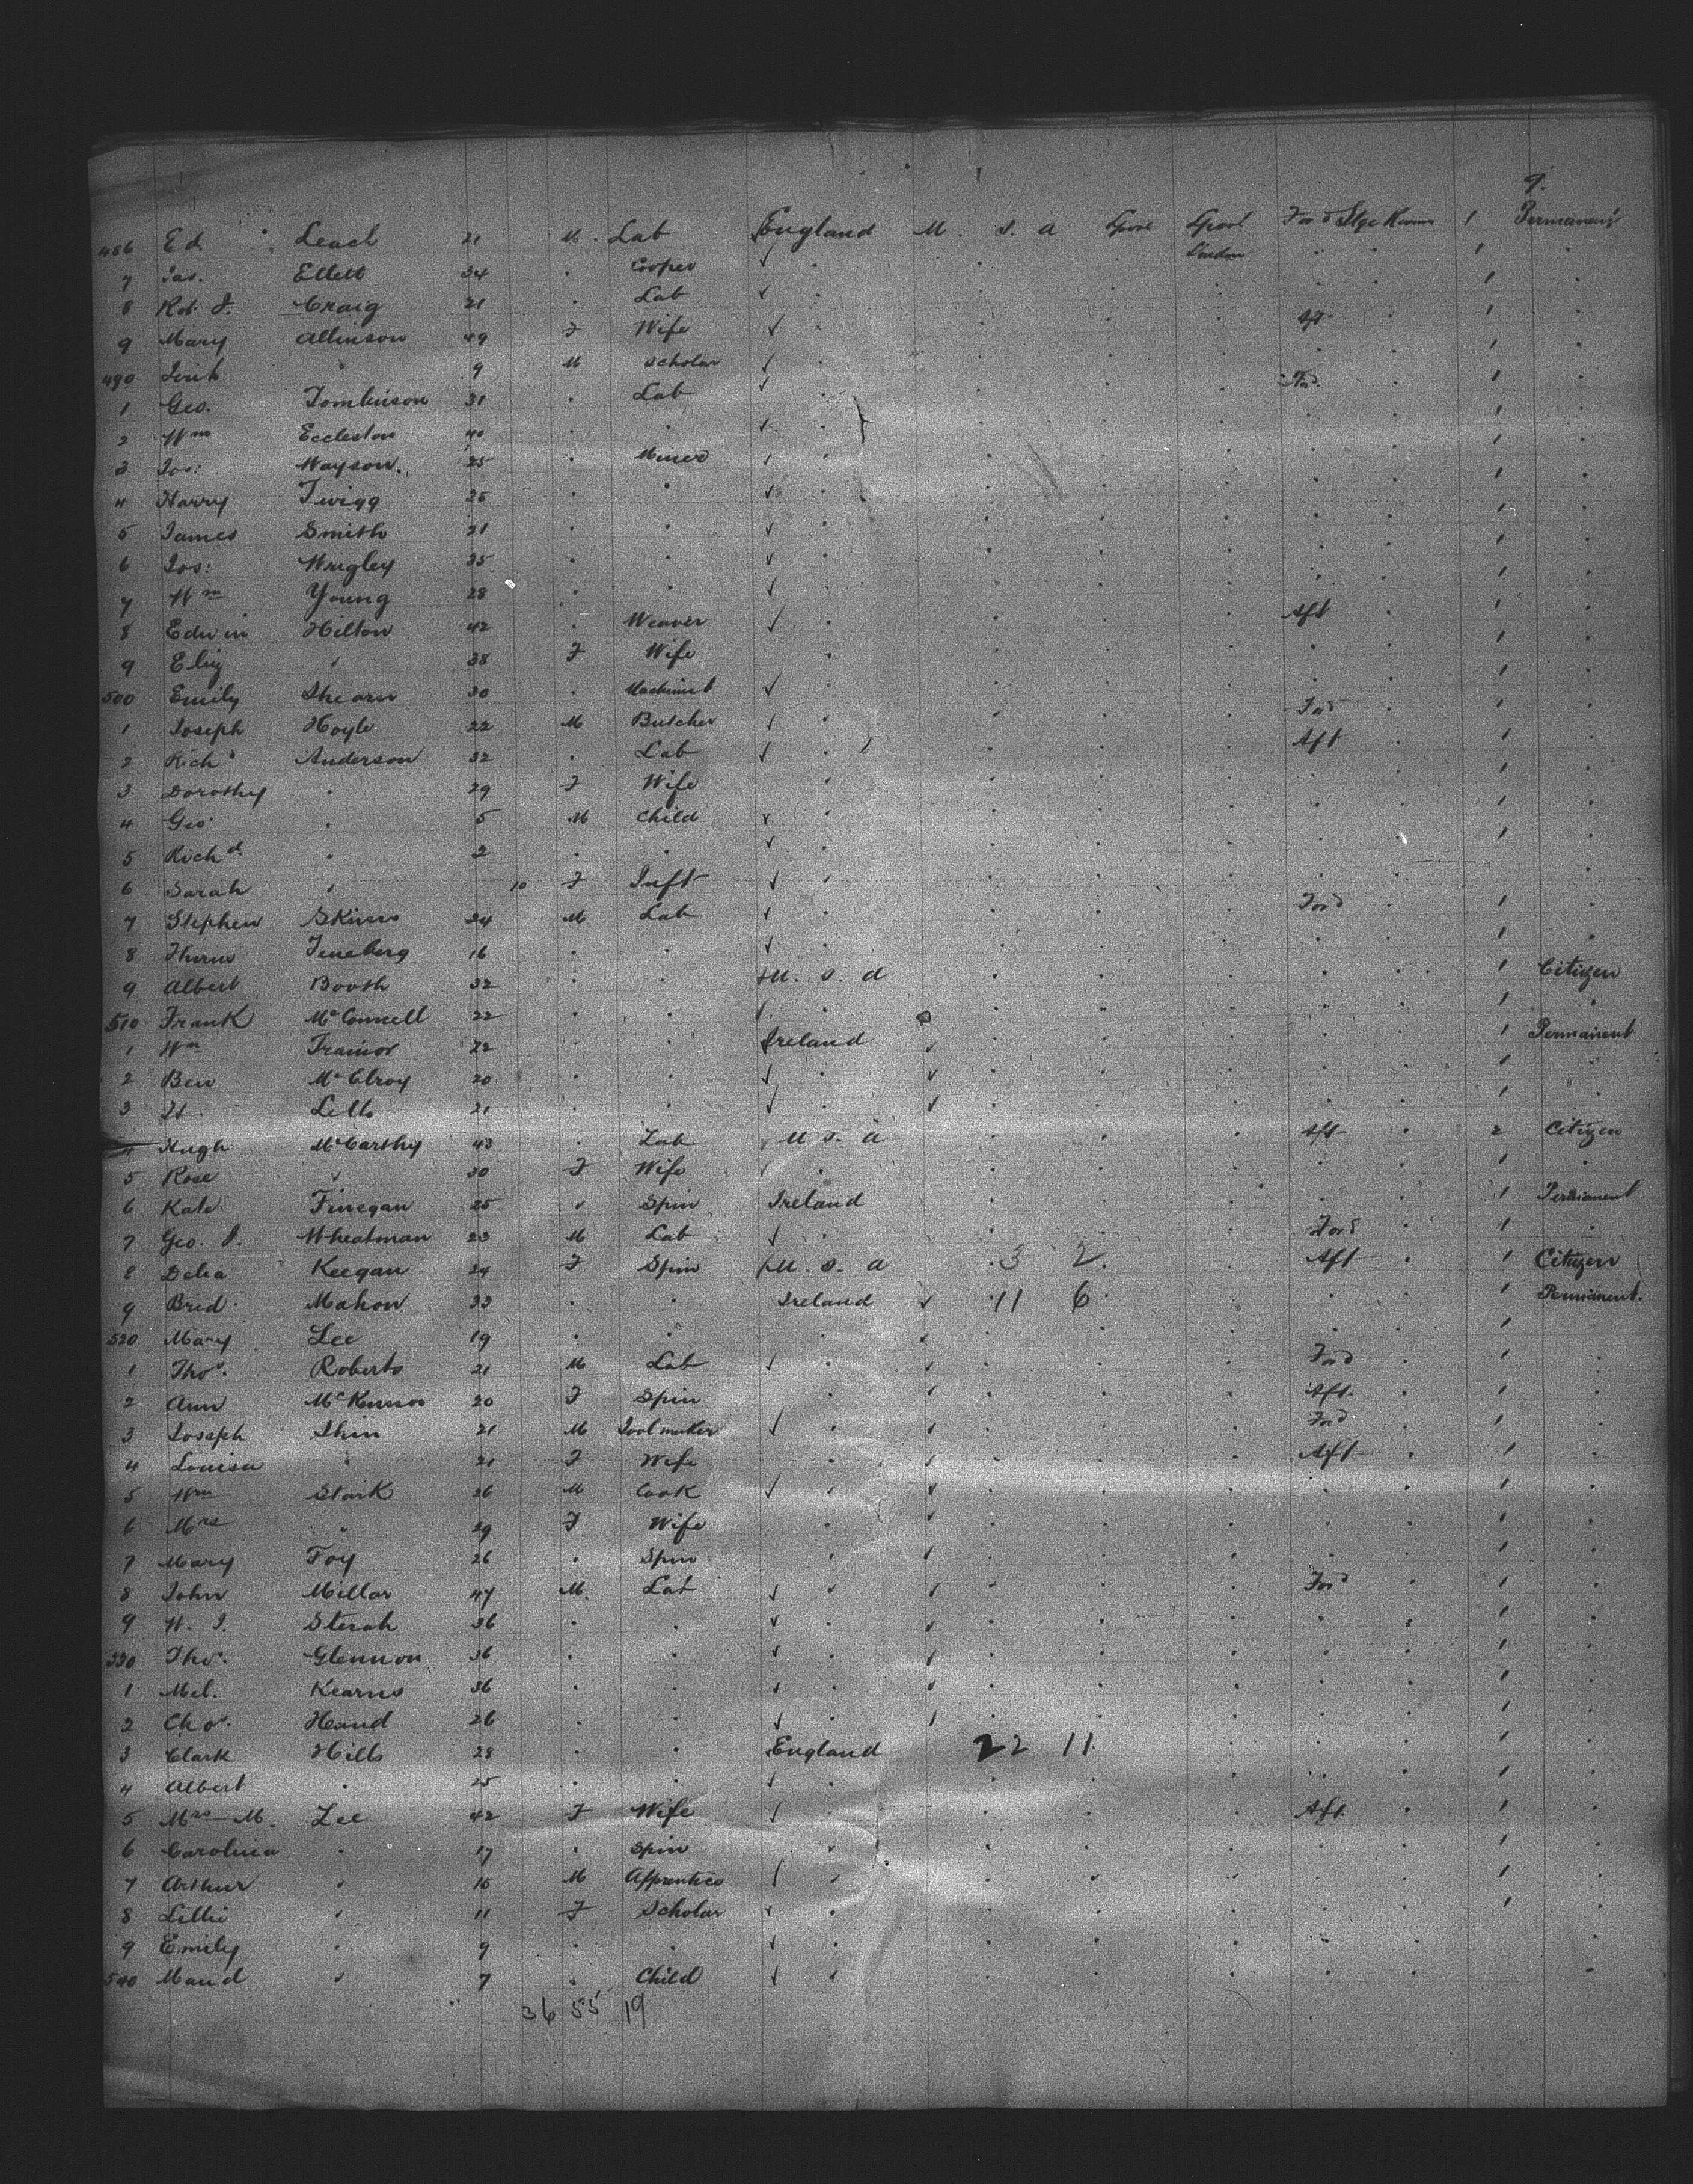 9.
486 Ed. Leach 21 M. Lab England U. S. a Lpool Lpool For'd Stge 1 Permanent
7 Jas. Ellett 34 . Cooper ✓ . London " 1 .
8 Rob. J. Craig 21 . Lab ✓ . 1 .
9 Mary Allinson 49 F Wife ✓ . Aft . 1 .
490 " 9 M Scholar ✓ . 1 .
1 Geo. Tomlinson 31 . Lab ✓ . For'd . 1 .
2 Wm Eccleston 40 . . ✓ . 1 .
3 Jos: Wayson. 25 . Miner ✓ . 1 .
4 Harry Twigg 25 . . ✓ . 1 .
5 James Smith 21 . . ✓ . 1 .
6 Jos: Wrigley 35 . . ✓ . 1 .
7 Wm Young 28 . . ✓ . 1 .
8 Edwin Hilton 42 . Weaver ✓ . Aft . 1 .
9 Eliz " 38 F Wife . 1 .
500 Emily Shearn 30 . Machinist ✓ . 1 .
1 Joseph Hoyle 22 M Butcher ✓ . For'd . 1 .
2 Richd Anderson 32 . Lab ✓ . Aft . 1 .
3 Dorothy " 29 F Wife . 1 .
4 Geo. " 5 M Child ✓ . 1 .
5 Richd " 2 . . ✓ . 1 .
6 Sarah " 10 F Inft ✓ .
7 Stephen Skinns 24 M Lab ✓ . For'd . 1 .
8 16 . . ✓ . 1 .
9 Albert Booth 32 . . U. S. a 1 Citizen
510 Frank McConnell 22 . . ✓ . 1 "
1 Wm Trainor 22 . . Ireland ✓ 1 Permanent
2 Ben McElroy 20 . . ✓ . ✓ 1 "
3 21 . . ✓ . ✓ 1 .
4 Hugh McCarthy 43 . Lab U S. a Aft . 2 Citizen
5 Rose " 30 F Wife . 1 "
6 Kate Finegan 25 " Spin Ireland 1 Permanent
7 Geo. J. Wheatman 23 M Lab ✓ . For'd . 1 .
8 Delia Keegan 24 F Spin U. S. a 3 2. Aft . 1 Citizen
9 Brid. Mahon 33 . . Ireland ✓ 11 6 1 Permanent.
520 Mary Lee 19 . " . ✓ 1 .
1 Thos. Roberts 21 M Lab ✓ . ✓ For'd . 1 .
2 Ann 20 F Spin . ✓ Aft. . 1 .
3 Joseph Shin 21 M Tool maker ✓ . ✓ For'd . 1 .
4 Louisa " 21 F Wife . ✓ Aft . 1 .
5 Wm Stark 26 M Cook ✓ . ✓ 1 .
6 Mrs " 29 F Wife . ✓ 1 .
7 Mary Foy 26 . Spin . ✓ 1 .
8 John Millar 47 M. Lab ✓ . ✓ For'd . 1 .
9 W. J. 36 . . ✓ . ✓ 1 .
530 Thos. Glennon 36 . . ✓ . ✓ 1 .
1 Mcl. Kearns 36 . . ✓ . ✓ 1 .
2 Chas. Hand 26 . . ✓ . ✓ 1 .
3 Clark Hills 28 . . England 22 11. 1 .
4 Albert " 25 . . ✓ . 1 .
5 Mrs M. Lee 42 F Wife ✓ . Aft. . 1 .
6 Carolina " 17 . Spin . 1 .
7 Arthur " 15 M Apprentice ✓ . 1 .
8 Lillie " 11 F Scholar ✓ . 1 .
9 Emily " 9 . . ✓ .
540 Maud " 7 . Child ✓ .
36 55 19